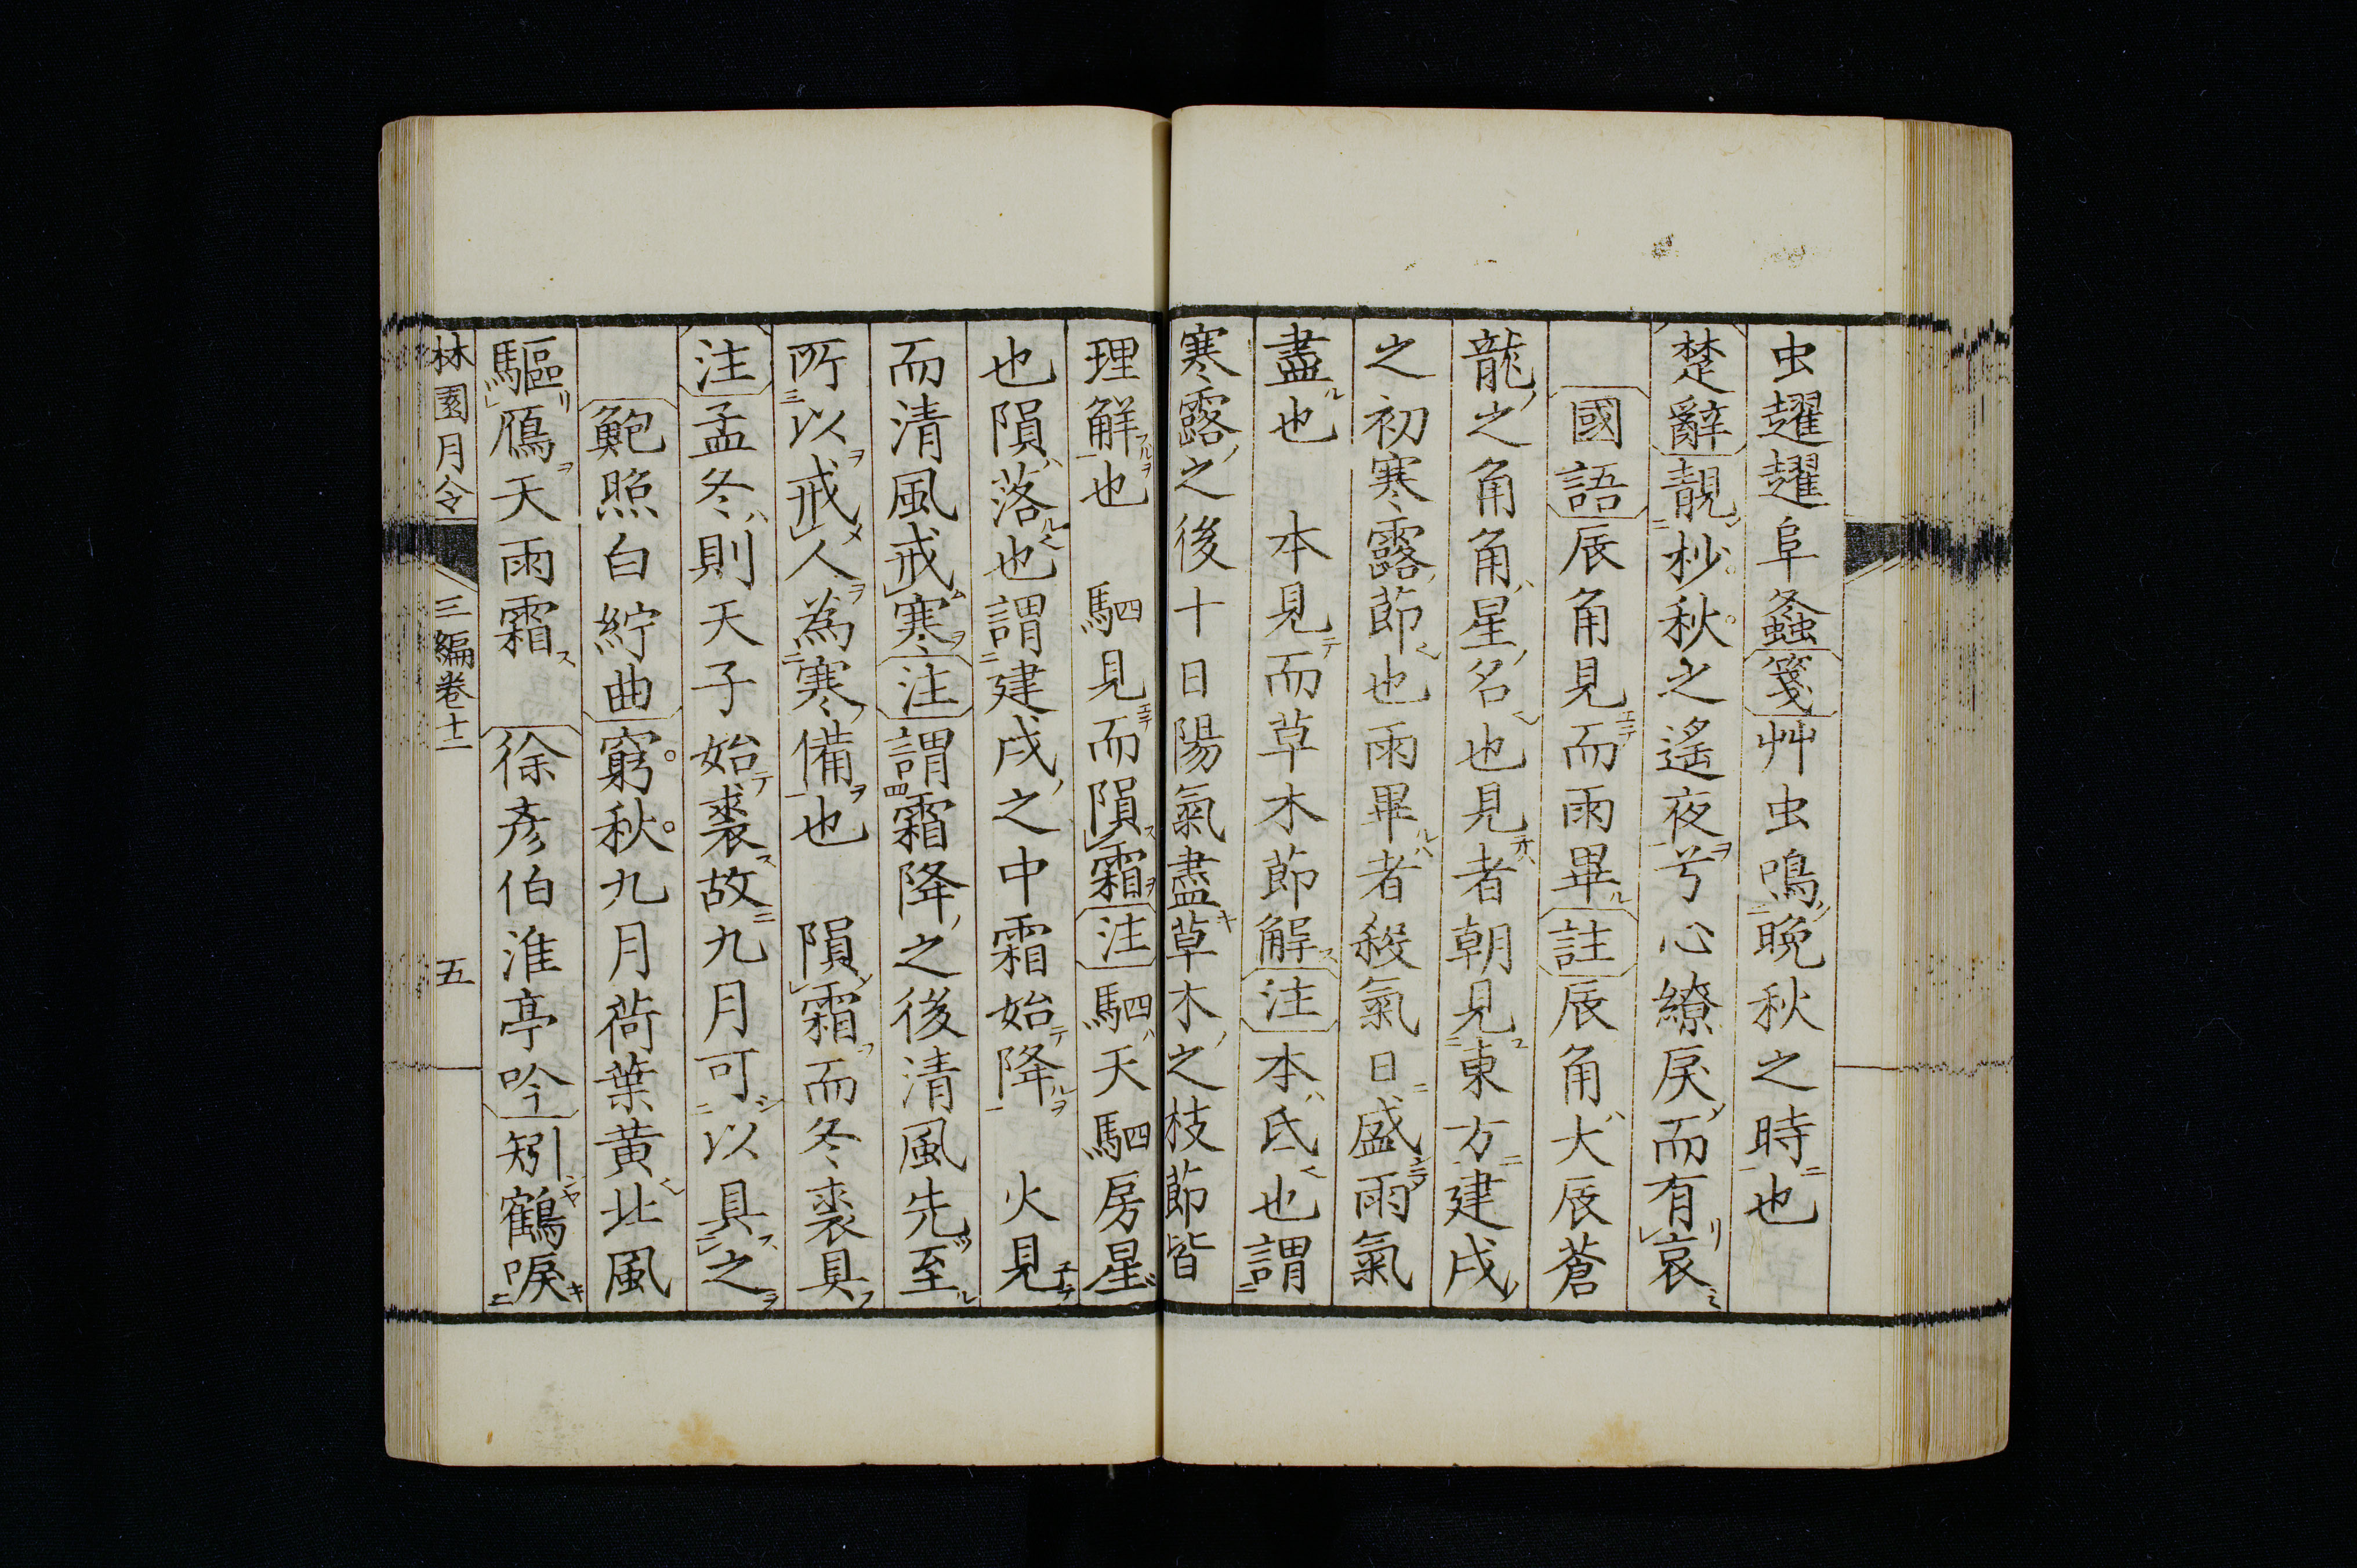 虫趯趯阜螽箋艸虫鳴晩秋之時也
楚辭靚杪秋之遙夜兮心繚戾而有哀
國語辰角見而雨畢註辰角大辰蒼
龍之角角星名也見者朝見東方建戌
之初寒露節也雨畢者殺氣日盛雨氣
盡也 本見而草木節解注本氐也謂
寒露之後十日陽氣盡草木之枝節皆
理解也 駟見而隕霜注駟天駟房星
也隕落也謂建戌之中霜始降 火見
而清風戒寒注謂霜降之後清風先至
所以戒人為寒備也 隕霜而冬裘具
注孟冬則天子始裘故九月可以具之
鮑照白紵曲窮秋九月荷葉黄北風
驅鴈天雨霜 徐彥伯淮亭吟矧鶴唳
林園月令 三編卷十二 五